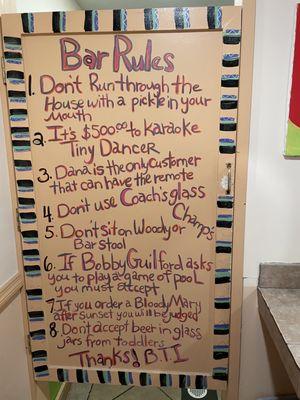 Bar Rules
1. Don't Run through the
House with a pickle in your
Mouth
2. It's $500.00 to karaoke
Tiny Dancer
3. Dana is the only customer
that can have the remote
4. Don't use Coach's glass
Champs
5. Don't sit on Woody or
Bar stool
6. If Bobby Guilford asks
you to play a game of pool
you must accept
7. If you order a Bloody Mary
after sunset you will be judged
8. Don't accept beer in glass
jars from toddlers
Thanks! B.T.I